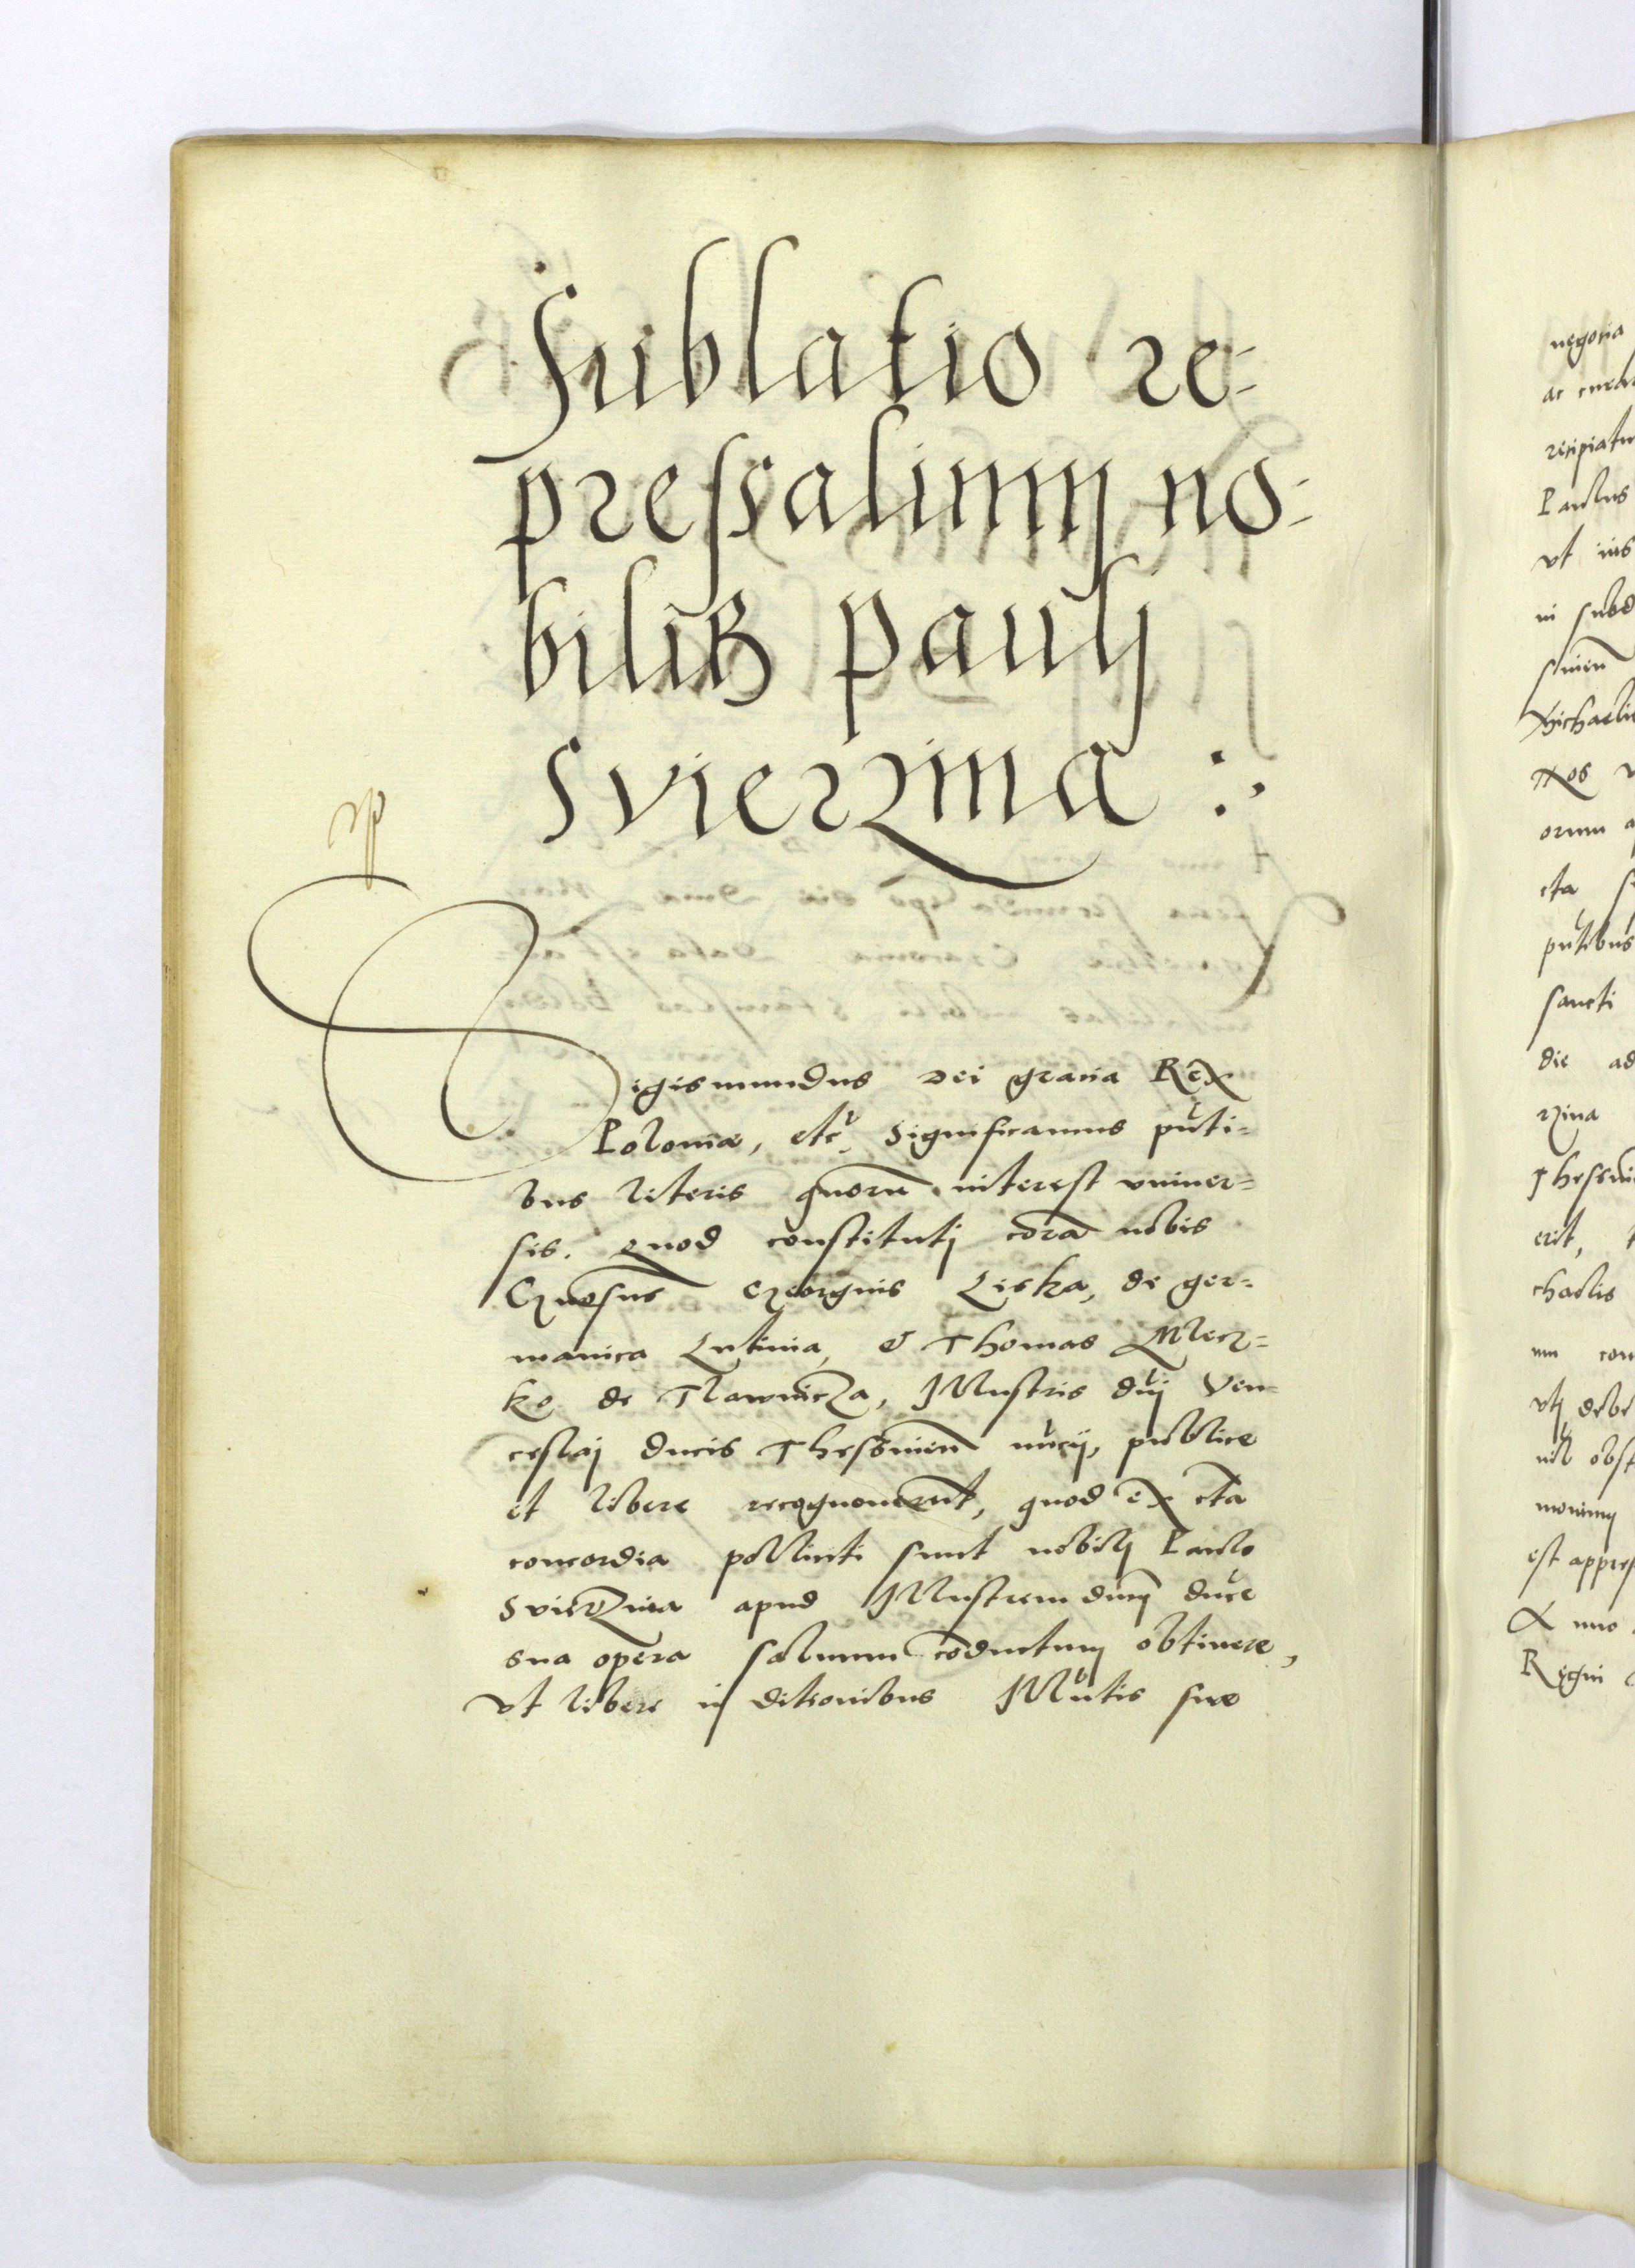 Sublatio re-
pressalium no-
bilis pauli
Svierzina :
Sigismundus Dei gratia Rex
Poloniæ, etc. Significamus pńti-
bus literis quorū interest vniuer-
sis. Quod constituti corā nobis
Gńosus Georgius Liska, de ger-
manica Lutinia, & Thomas Mlecz-
ko de Tlawnicza, Illustris dńi Ven-
ceslai ducis Thessinień nuńcii, publice
et libere recognouerūt, quod ex cta
concordia polliciti sunt nobili Paulo
Svierzina apud Illustrem dnm̄ duce
sua opera saluum cōductum obtinere,
vt libere in ditionibus Illńtis suæ
negocia
recipiatu
Paulus
vt ius
in subd
Michaelis
Nos v
orum a
cta
pńtibus
sancti
die ad
rzina
Thessini
erit,
chaelis
um con
vti debe
nil obst
est appres
Anno
Regni